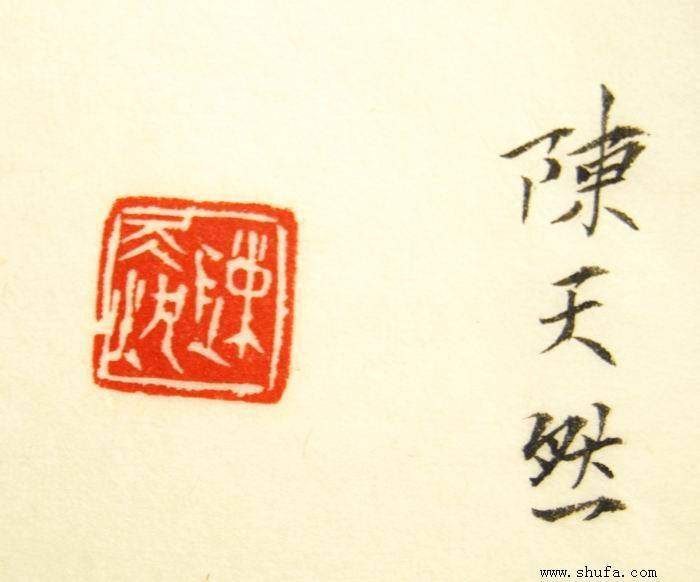 陳天然
陳天然
www.shufa.com